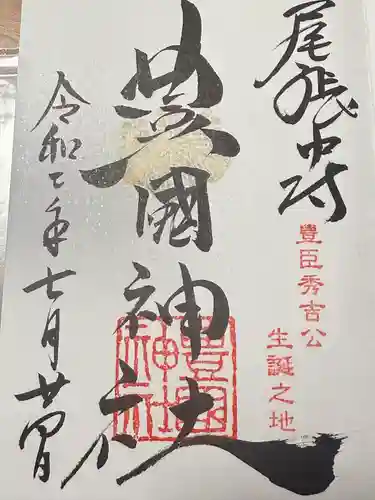 尾張中村
豊臣秀吉公
生誕之地
豊國神社
豊國神社
令和七年七月廿四日